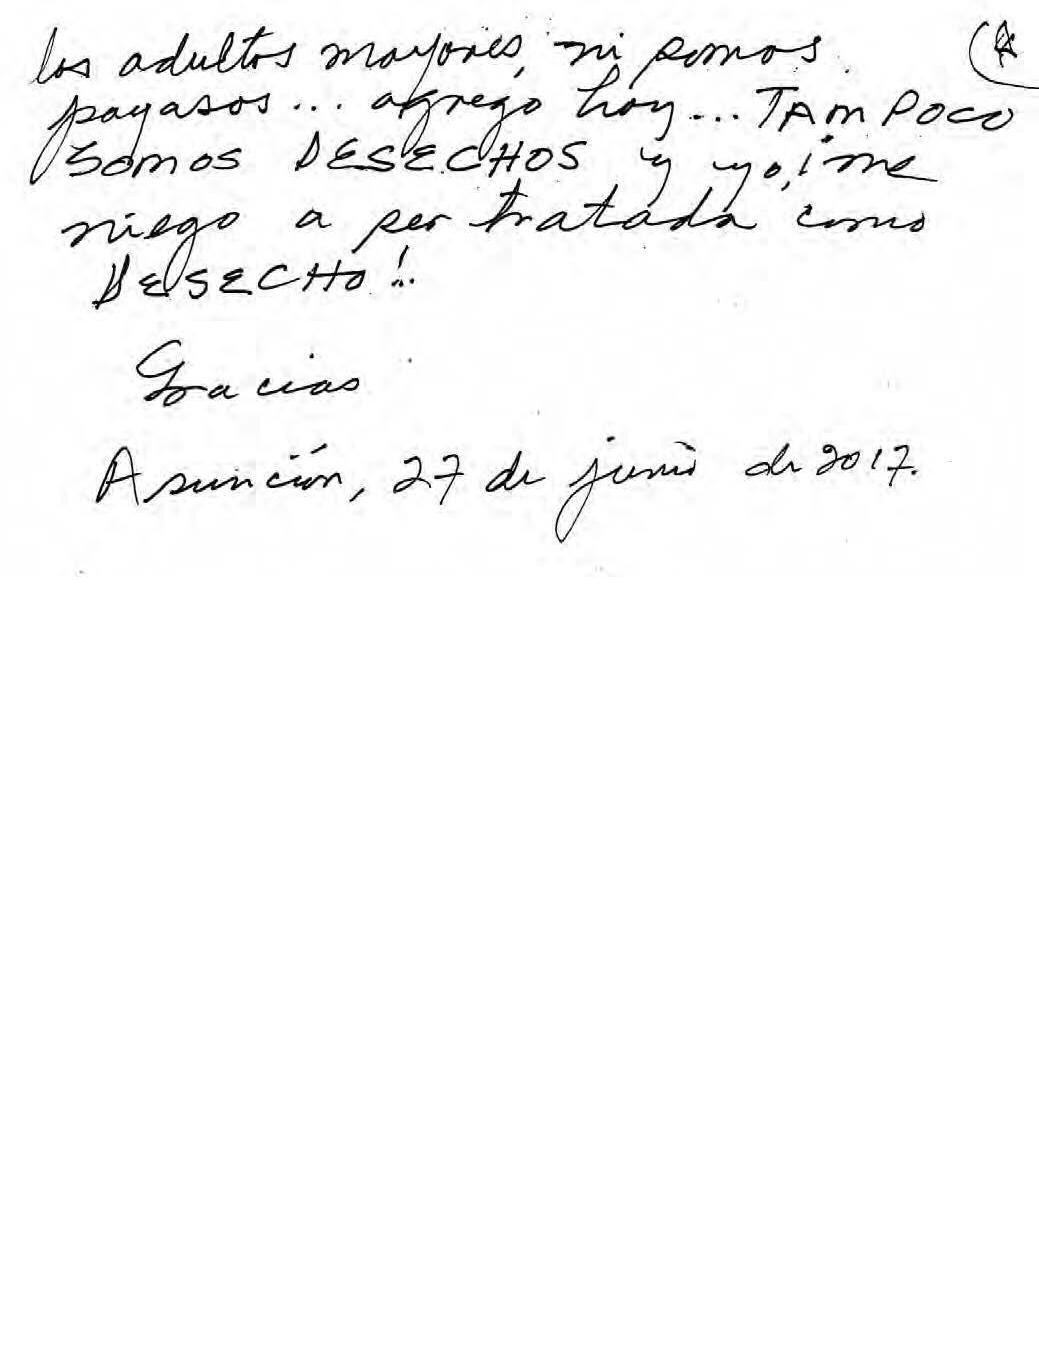 los adultos mayores, ni somos
payasos... agrego hoy... TAMPOCO
SOMOS DESECHOS y yo, ¡me
niego a ser tratada como
DESECHO!..
Gracias
Asunción, 27 de junio de 2017.